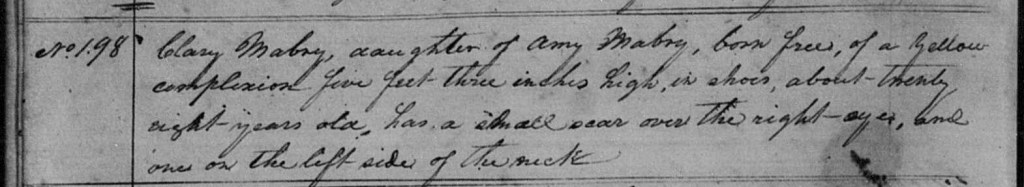 No. 198 Clary Mabry, daughter of Amy Mabry, born free, of a Yellow
complexion five feet three inches high, in shoes, about twenty
eight years old, has a small scar over the right eye, and
one on the left side of the neck